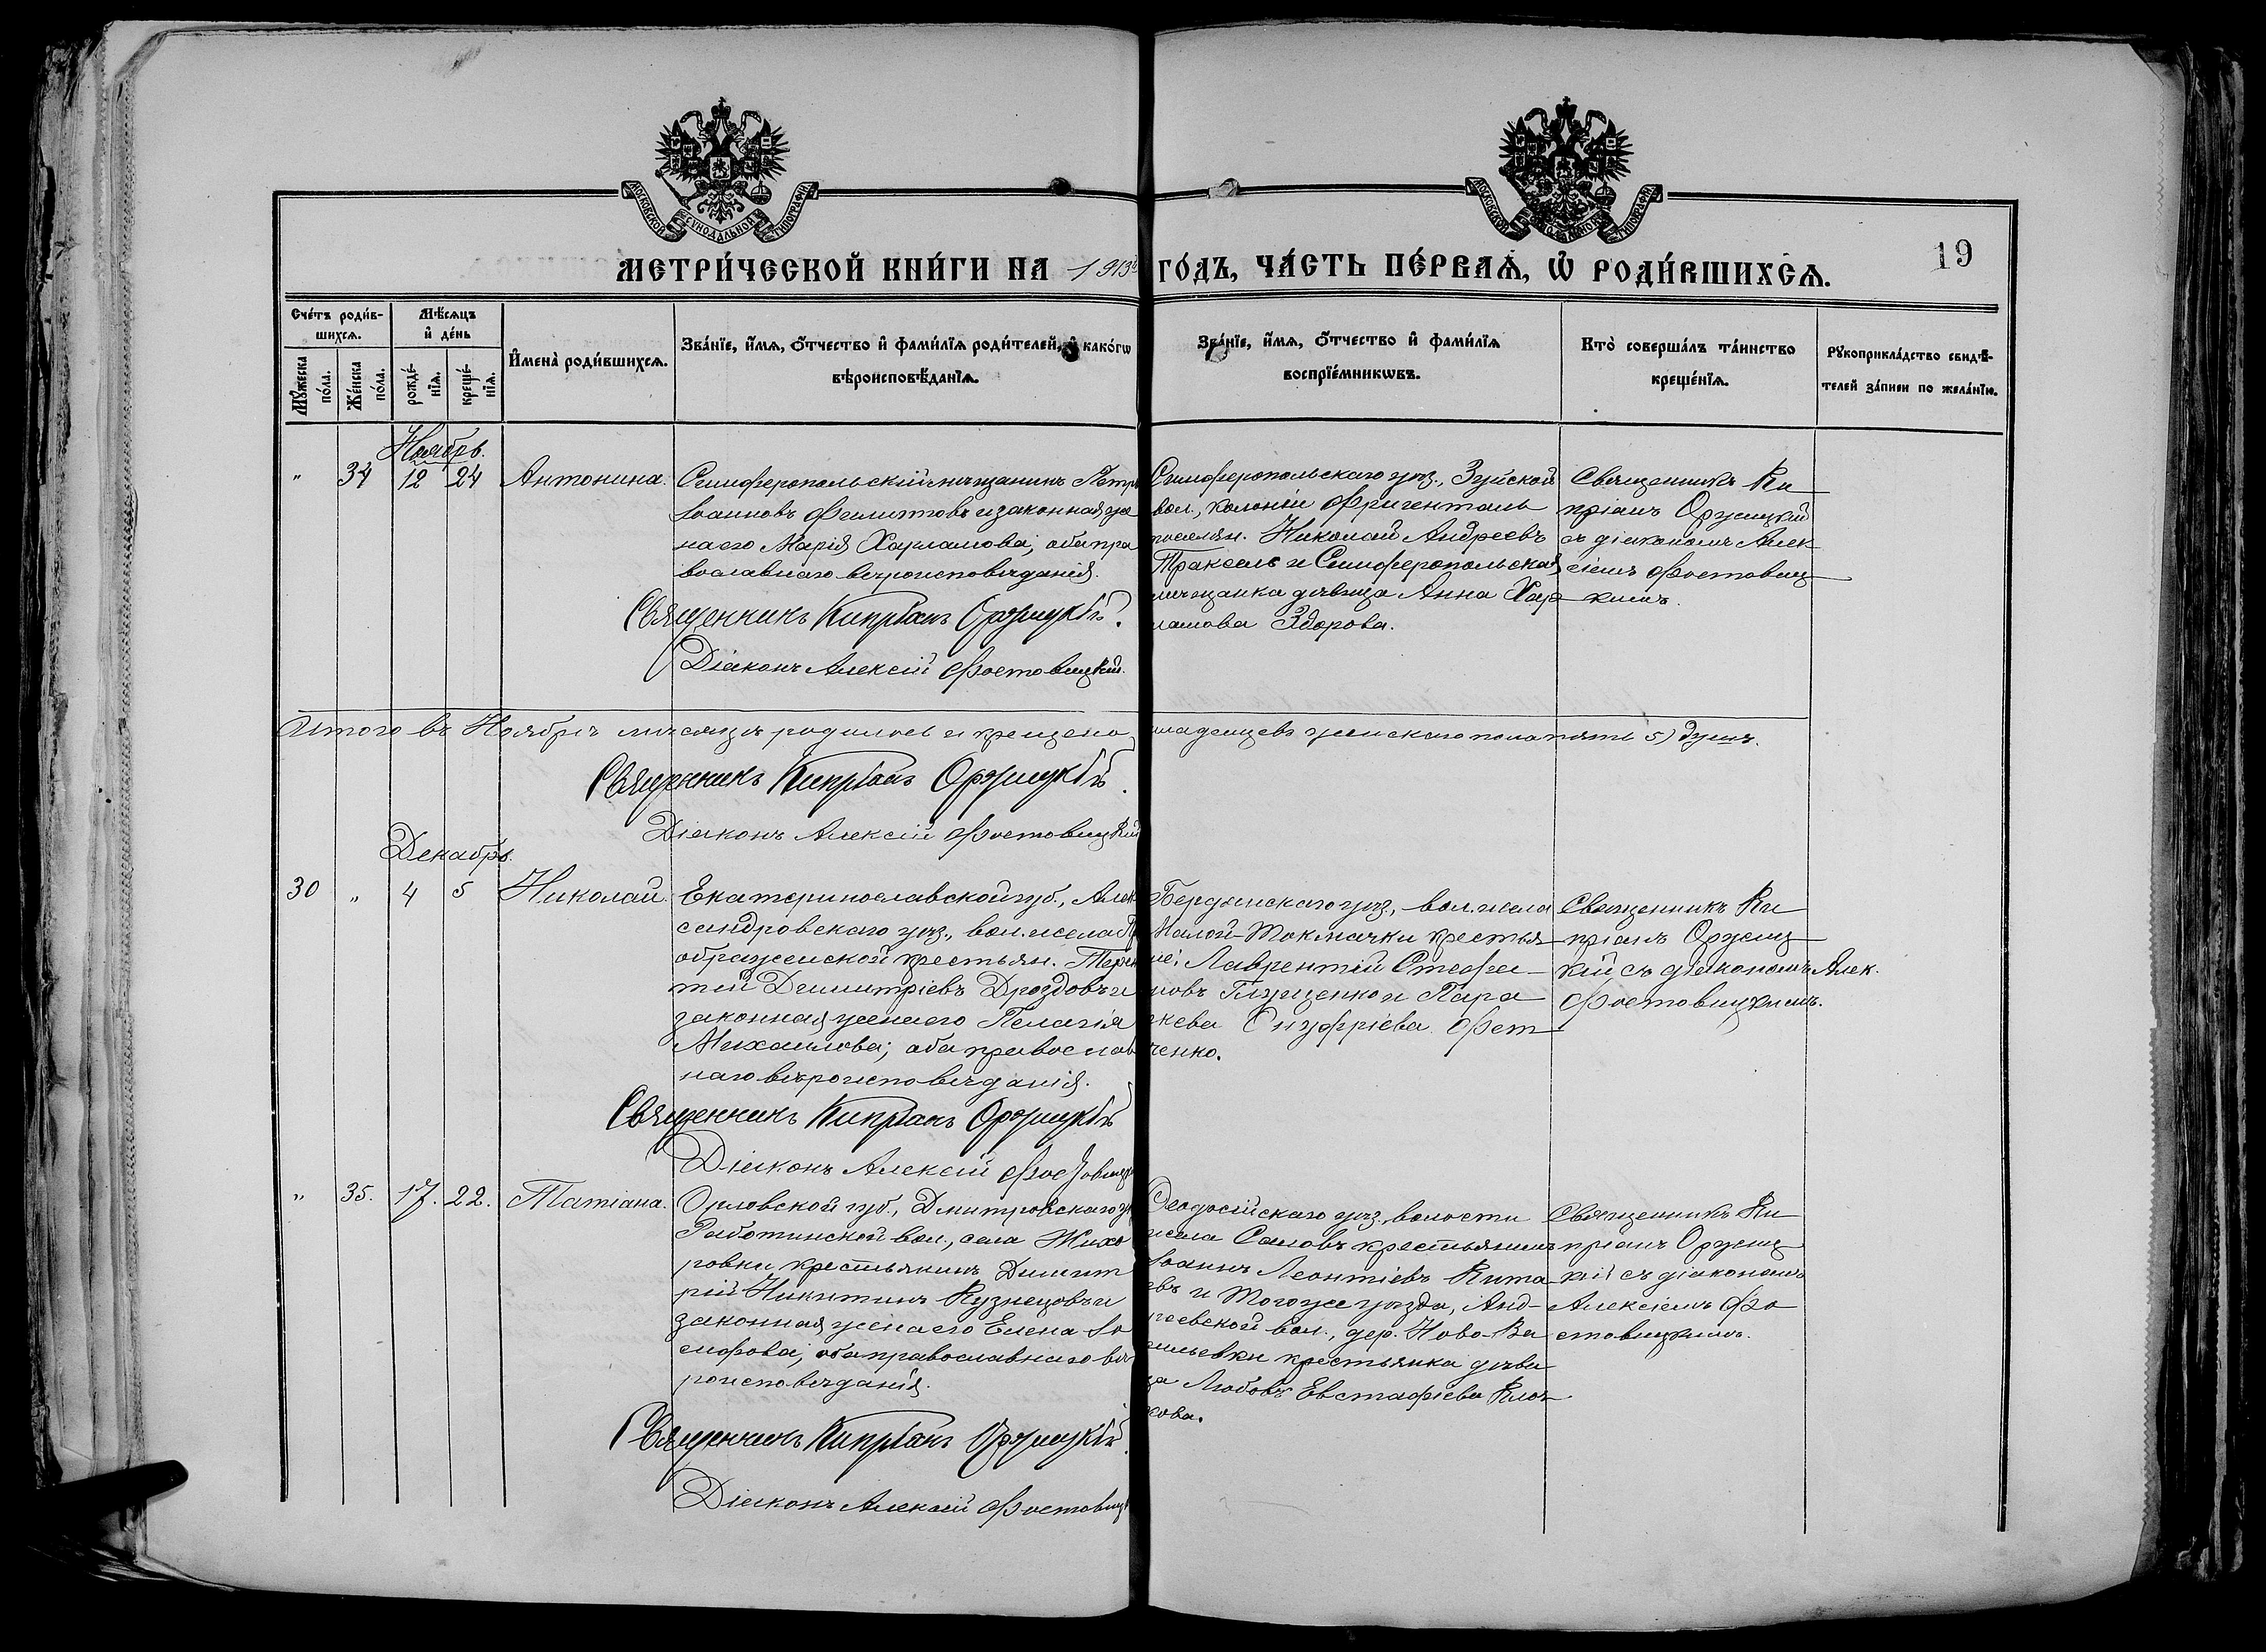 МОСКОВСКОЙ СѴНОДАЛЬНОЙ ТИПОГРАФІИ
МОСКОВСКОЙ СѴНОДАЛЬНОЙ ТИПОГРАФІИ
МЕТРИ́ЧЕСКОЙ КНИ́ГИ НА 1913й ГО́ДЪ, ЧА́СТЬ ПЕ́РВАѦ, Ѡ҆ РОДИ́ВШИХСѦ.
19
Сче́тъ роди́в-
шихсѧ.
Мꙋ́жеска по́ла.
Же́нска по́ла.
Мѣ́сѧцъ
и҆ де́нь
рожде́-
нїѧ.
креще́-
нїѧ.
И҆мена̀ роди́вшихсѧ.
Зва́нїе, и҆́мѧ, ѻ҆́тчество и҆ фами́лїѧ роди́телей, и҆ како́гѡ
вѣроисповѣ́данїѧ.
Зва́нїе, и҆́мѧ, ѻ҆́тчество и҆ фами́лїѧ
воспрїе́мникѡвъ.
Кто̀ соверша́лъ та́инство
креще́нїѧ.
Рꙋкоприкла́дство свидѣ́-
телей за́писи по жела́нїю.
Ноябрь.
" 34 12 24 Антонина.
Симферопольскій мѣщанинъ Петръ
Іоанновъ и законная же
на его Марія Харламова; оба пра
вославнаго вѣроисповѣданія.
Священникъ Кипріанъ Оржицкій.
Діаконъ Алексій Фостовицкій.
Симферопольскаго уѣз., Зуйской
вол., колоніи Фриденталь
поселян. Николай Андреевъ
Траксель и Симферопольская
мѣщанка дѣвица Анна Хар
ламова Здорова.
Священникъ Ки
пріанъ Оржицкій
съ діакономъ Алек
сіемъ Фостовиц
кимъ.
Итого въ Ноябрѣ мѣсяцѣ родилось и крещено младенцевъ женскаго пола пять 5) душъ.
Священникъ Кипріанъ Оржицкій.
Діаконъ Алексій Фостовицкій
Декабрь.
30 " 4 5 Николай.
Екатеринославской губ., Алек
сандровскаго уѣз., вол. и села Пр
ображенской крестьян. Терен
тій Димитріевъ Дроздовъ и
законная жена его Пелагія
Михаилова; оба православ
наго вѣроисповѣданія.
Священникъ Кипріанъ Оржицкій
Діаконъ Алексій Фостовицк
Бердянскаго уѣз., вол. и села
Малой-Токмачки крестья
не: Лаврентій Стефа
новъ Глущенко и Пара
скева Онуфріева Фет
ченко.
Священникъ Ки
пріанъ Оржиц
кій съ діакономъ Алек.
Фостовицкимъ.
" 35. 17. 22. Татіана.
Орловской губ., Дмитровскаго у
Работинской вол., села Жихо
ровки крестьянинъ Димит
рій Никитинъ Кузнецовъ и
законная жена его Елена Іо
сифова; оба православнаго вѣ
роисповѣданія.
Священникъ Кипріанъ Оржицкій.
Діаконъ Алексій Фостовиц
Ѳеодосійскаго уѣз. волости
и села Саловъ крестьянинъ
Іоаннъ Леонтіевъ Кита
евъ и того же уѣзда, Анд-
реевской вол., дер. Ново-Ва
сильевки крестьянка дѣви
ца Любовь Евстафіева
сова.
Священникъ Ки
пріанъ Оржиц
кій съ діакономъ
Алексіемъ Фо
стовицкимъ.